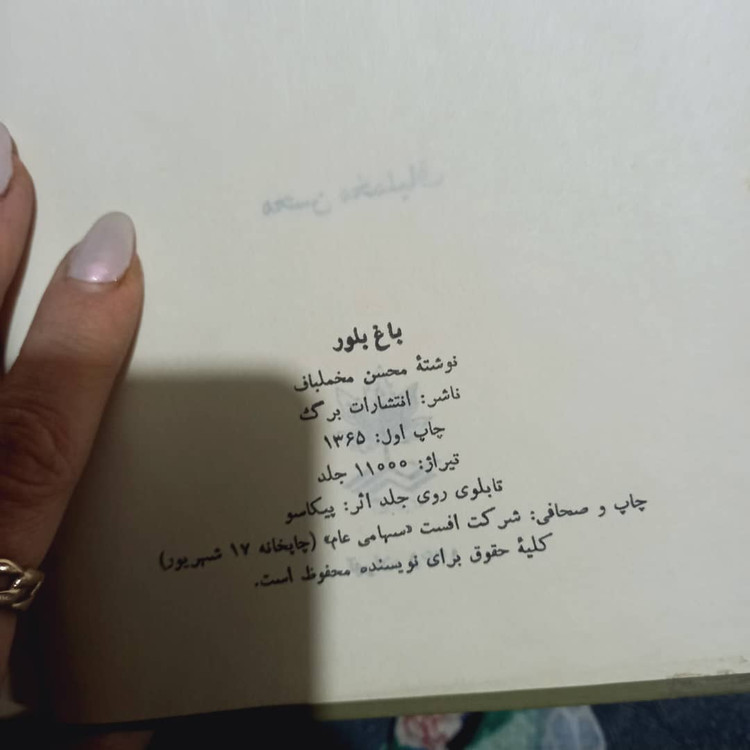 باغ بلور
نوشتهٔ محسن مخملباف
ناشر: انتشارات برگ
چاپ اول: ۱۳۶۵
تیراژ: ۱۱۰۰۰ جلد
تابلوی روی جلد اثر: پیکاسو
چاپ و صحافی: شرکت افست «سهامی عام» (چاپخانه ۱۷ شهریور)
کلیهٔ حقوق برای نویسنده محفوظ است.